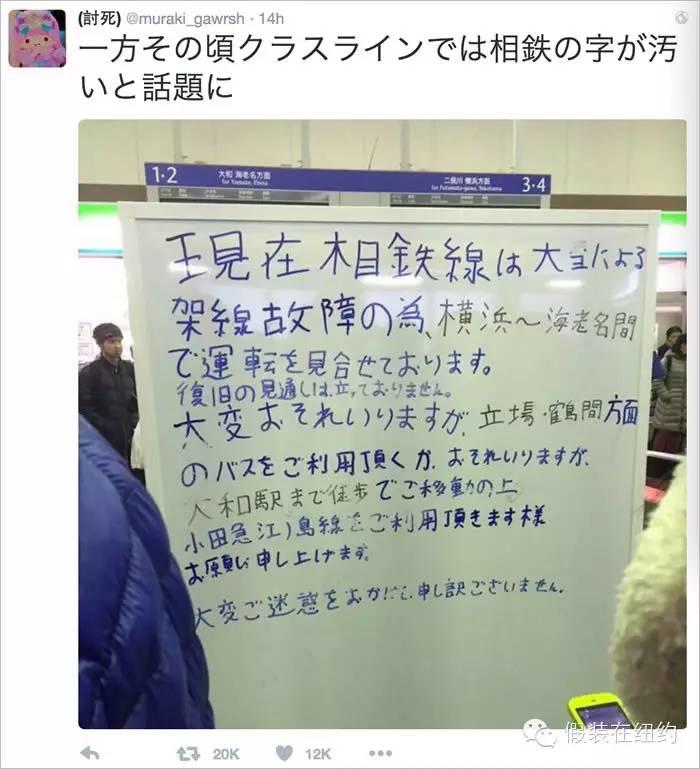 (討死) @muraki_gawrsh · 14h
一方その頃クラスラインでは相鉄の字が汚
いと話題に
1・2
大和 海老名方面
for Yamato, Ebina
二俣川 横浜方面
for Futamata-gawa, Yokohama
3・4
現在相鉄線は大雪による
架線故障の為、横浜～海老名間
で運転を見合せております。
復旧の見通しは立っておりません。
大変おそれいりますが、立場・鶴間方面
のバスをご利用頂くか、おそれいりますが、
大和駅まで徒歩でご移動の上
小田急江ノ島線をご利用頂きます様
お願い申し上げます。
大変ご迷惑をおかけし申し訳ございません。
20K
12K
假装在纽约